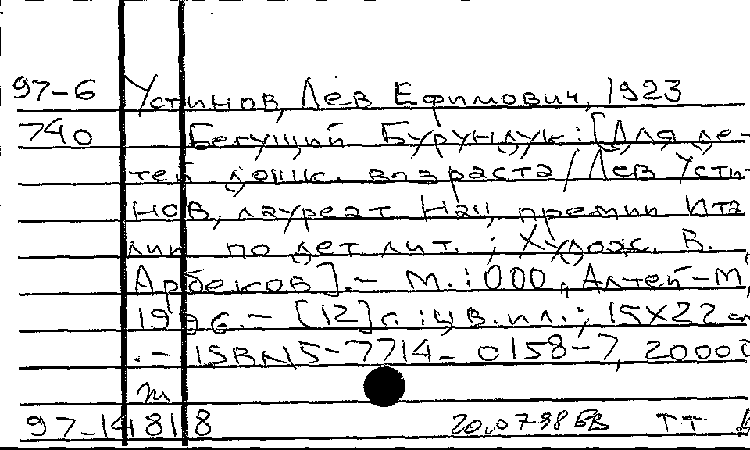 97-6 Устинов, Лев Ефимович, 1923
740 Бегущий Бурундук: [Для де-
тей дошк. возраста / Лев Усти-
нов, лауреат Нац. премии Ита
лии по дет. лит. ; Худож. В.
Арбеков]. - М. : ООО "Алтей-М,
1996. - [12] с. : цв. ил. ; 15X22 см
. - ISBN 5-7714-0158-7, 20000
97-14818 20.07.98 ТТ